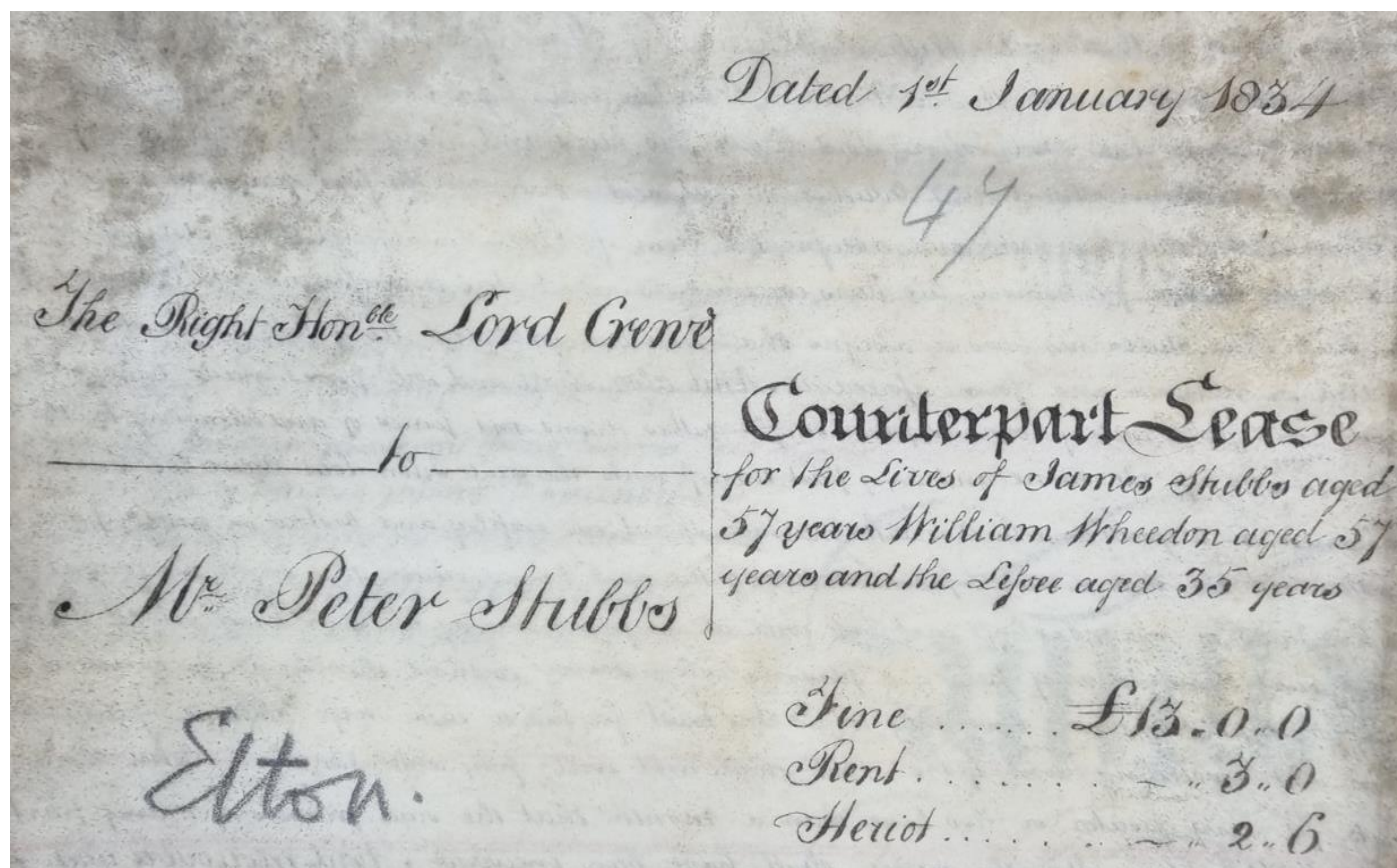 Dated 1st January 1834
47
The Right Honble Lord Crewe
to
Mr Peter Stubbs
Counterpart Lease
for the Lives of James Stubbs aged
57 years William Wheedon aged 57
years and the Lessee aged 35 years
Elton.
Fine ....... £13.0.0
Rent ......... — „ 3„0
Heriot ...... — „ 2„6